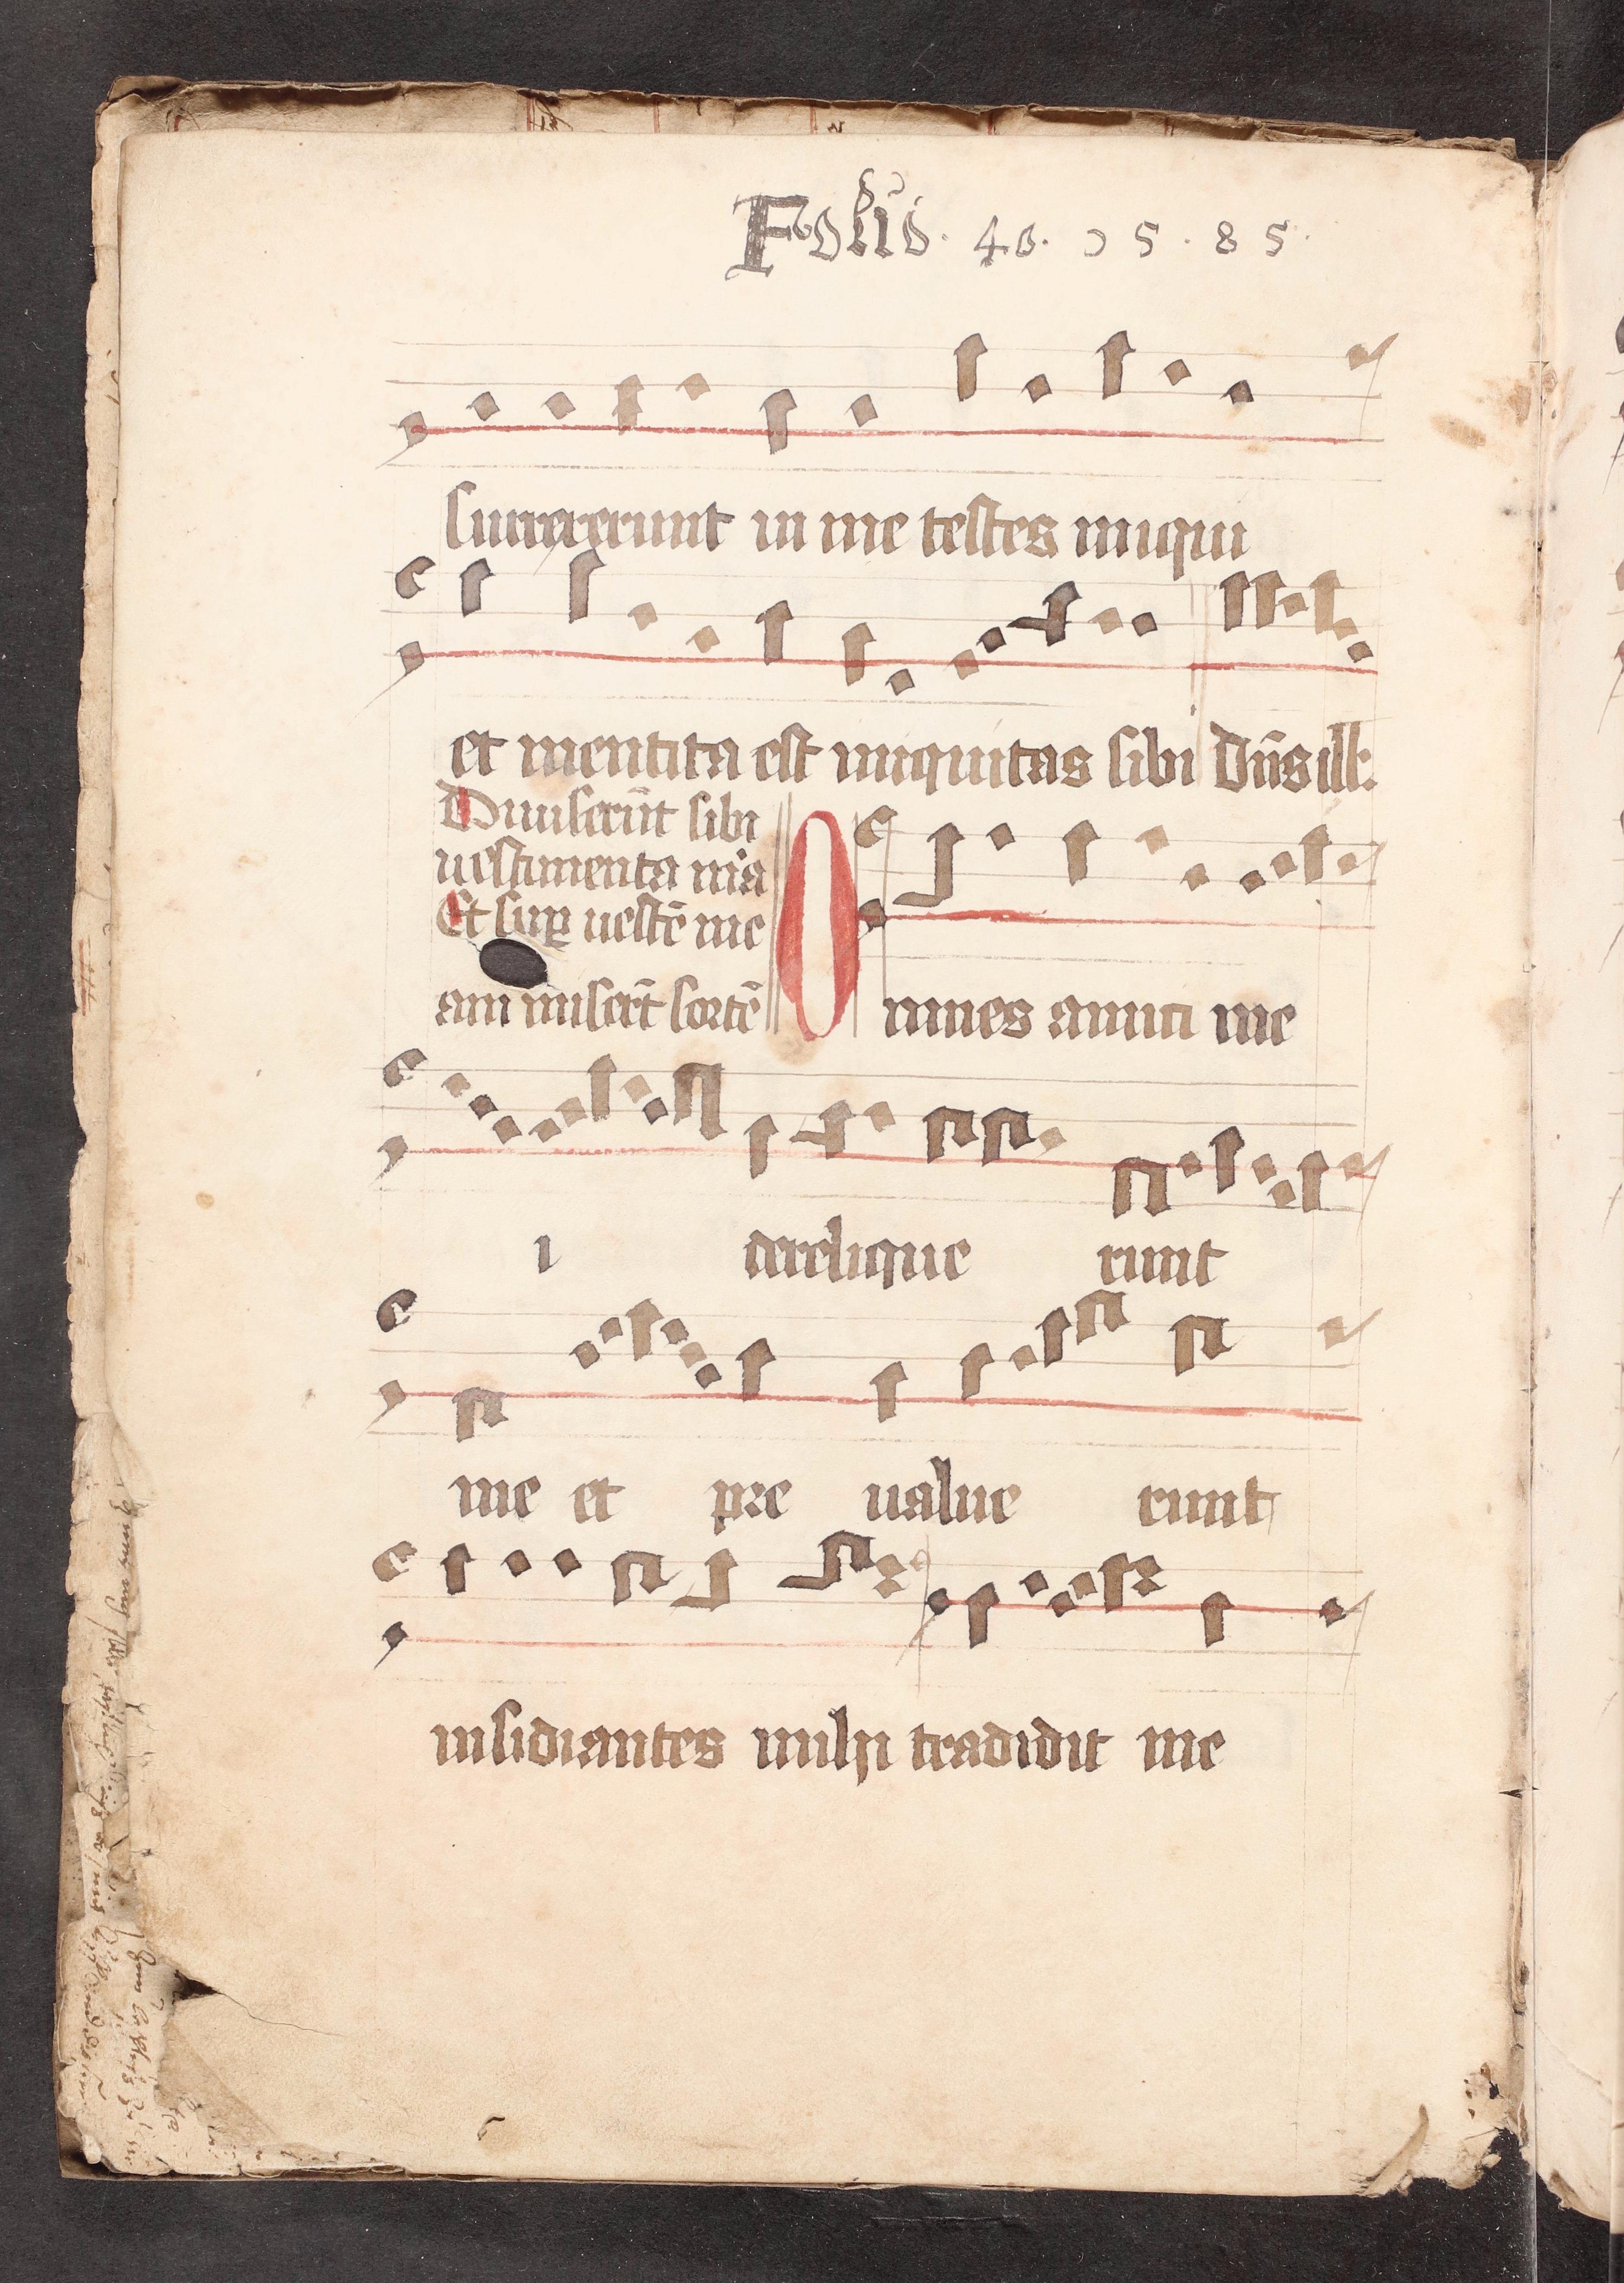 Folio. 40. 1585.
surrexerunt in me testes iniqui
et mentita est iniquitas sibi Dn̄s ill̄.
Diuiserūt sibi
uestimenta m̄a
Et sup uestē me
am miserūt sortē
Omnes amici me
i derelique runt
me et pre ualue runt
insidiantes mihi tradidit me